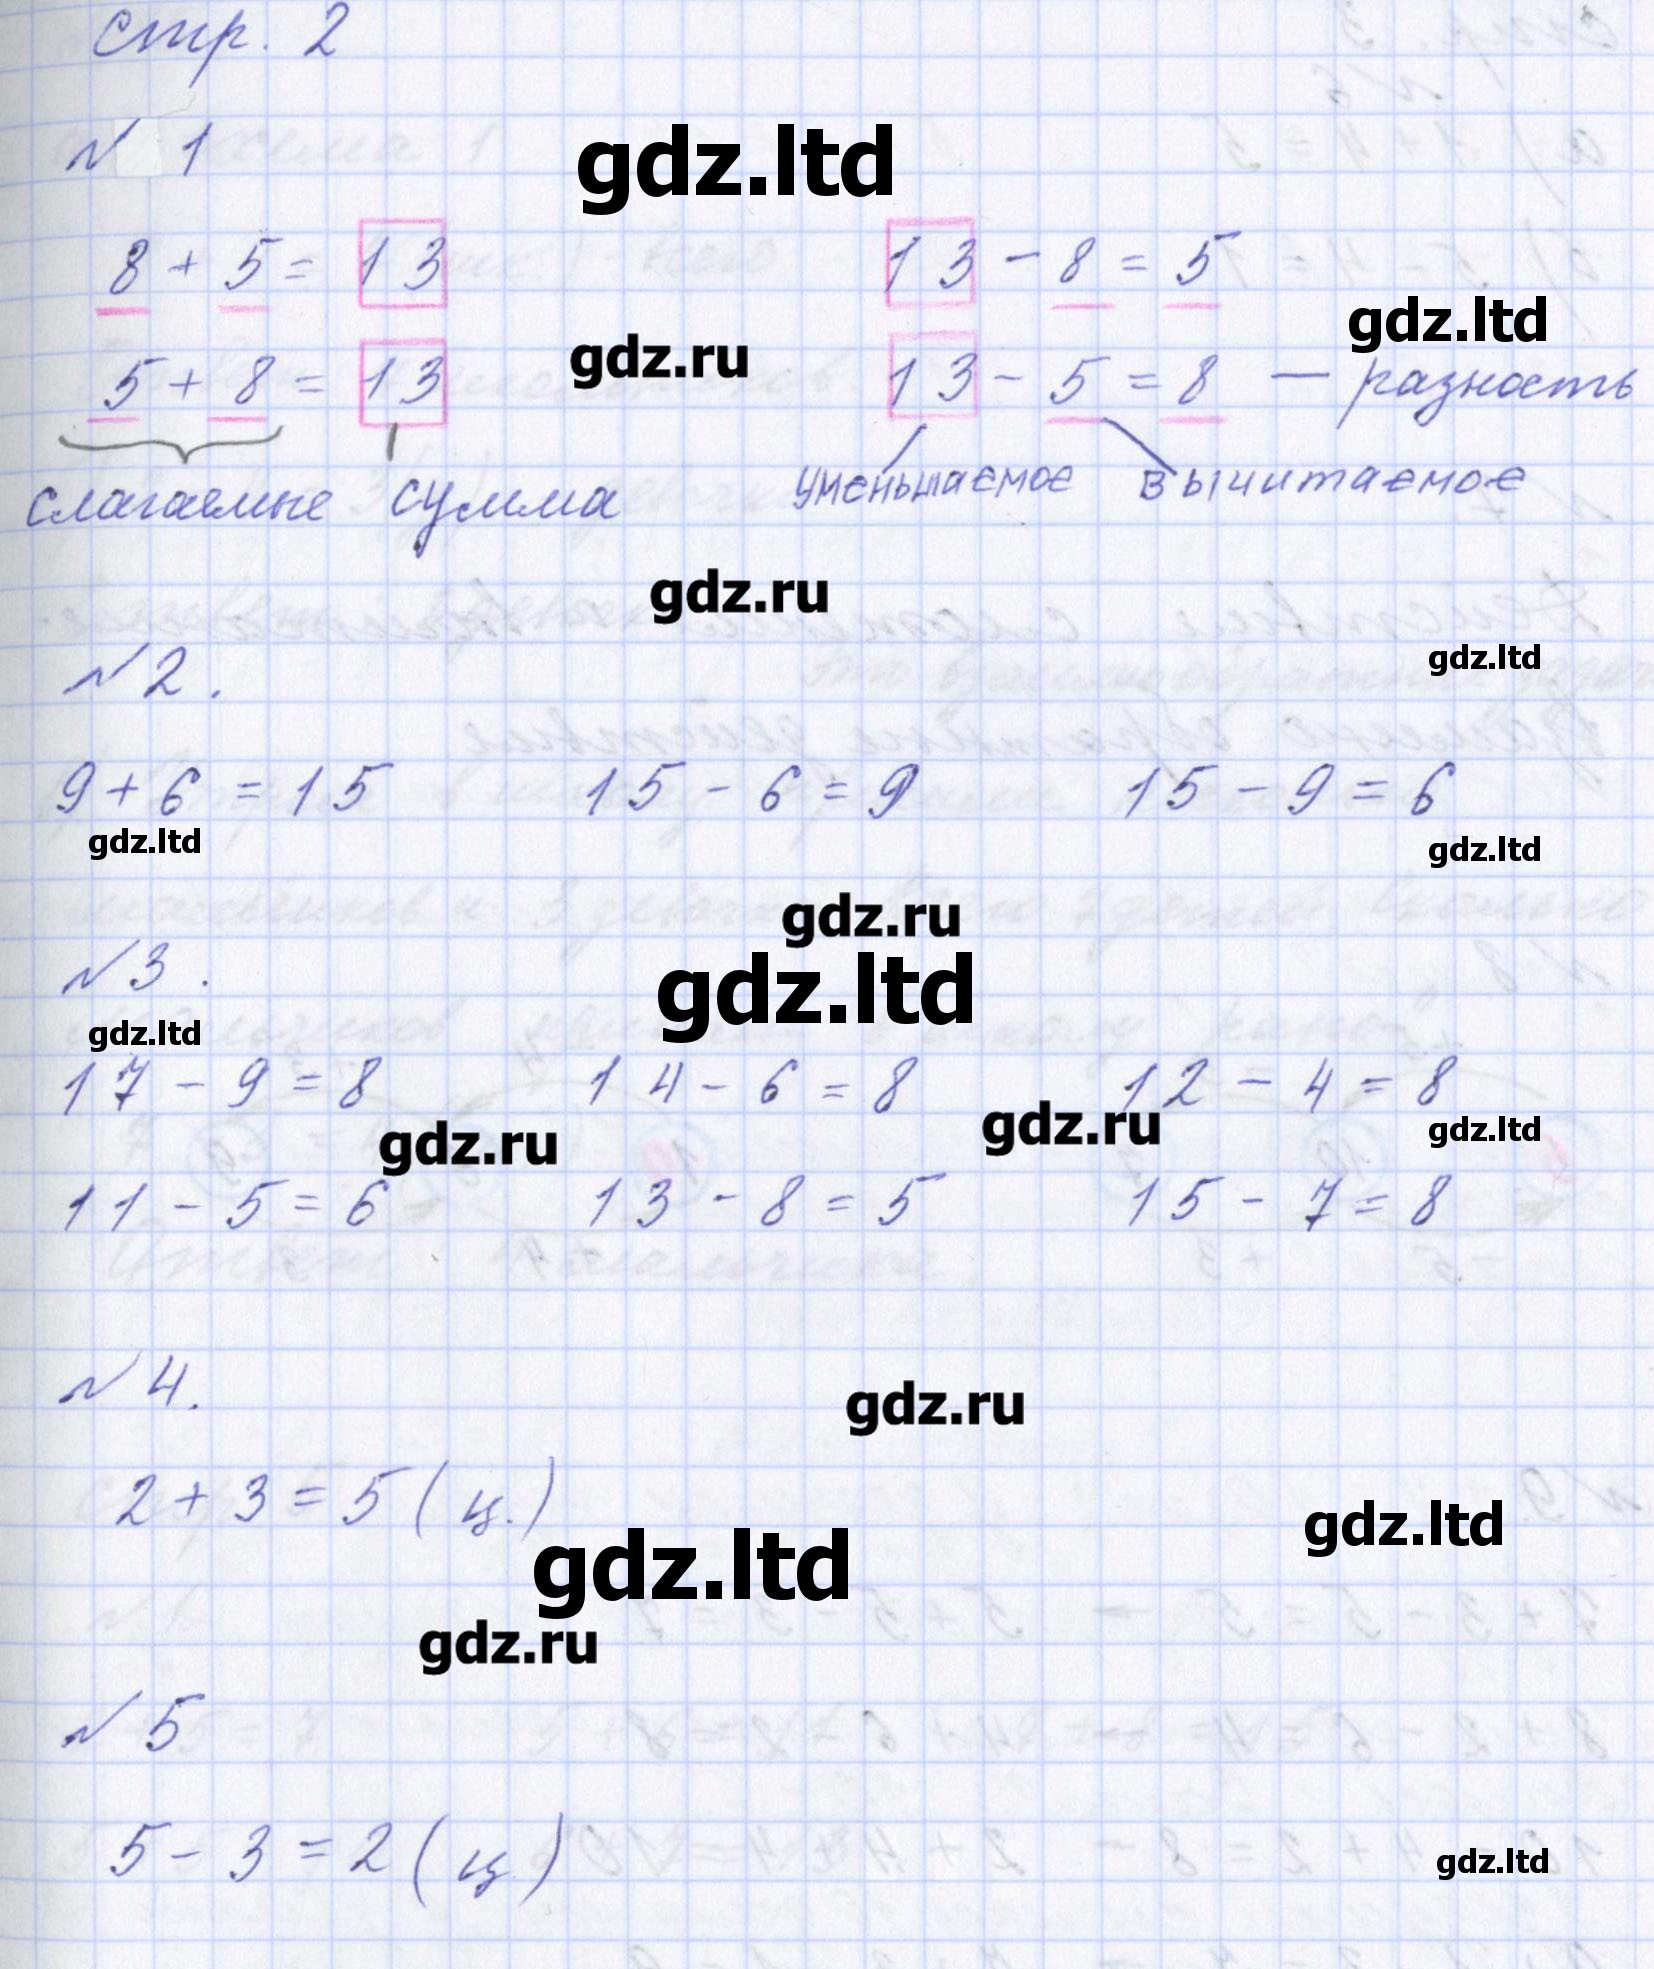 стр. 2
№ 1
gdz.ltd
8 + 5 = 13 13 - 8 = 5
gdz.ltd
gdz.ru
5 + 8 = 13 13 - 5 = 8 — разность
слагаемые сумма уменьшаемое вычитаемое
gdz.ru
gdz.ltd
№2.
9 + 6 = 15 15 - 6 = 9 15 - 9 = 6
gdz.ltd gdz.ltd
gdz.ru
№3.
gdz.ltd
gdz.ltd
17 - 9 = 8 14 - 6 = 8 12 - 4 = 8
gdz.ru gdz.ru gdz.ltd
11 - 5 = 6 13 - 8 = 5 15 - 7 = 8
№ 4.
gdz.ru
2 + 3 = 5 (ц.)
gdz.ltd
gdz.ltd
gdz.ru
№ 5
5 - 3 = 2 (ц.)
gdz.ltd